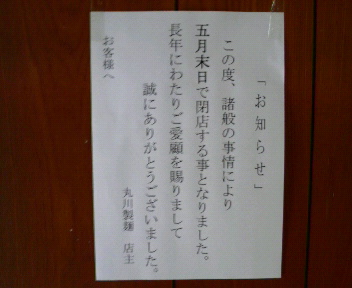 「お知らせ」
この度、諸般の事情により
五月末日で閉店する事となりました。
長年にわたりご愛顧を賜りまして
誠にありがとうございました。
丸川製麺 店主
お客様へ